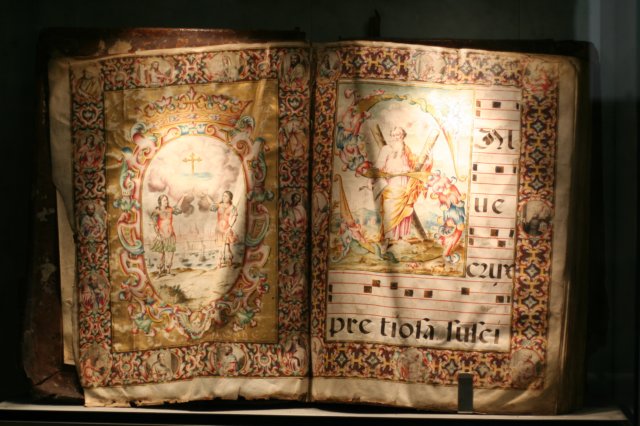 SAl
ue
crux
pre tiosa. susci